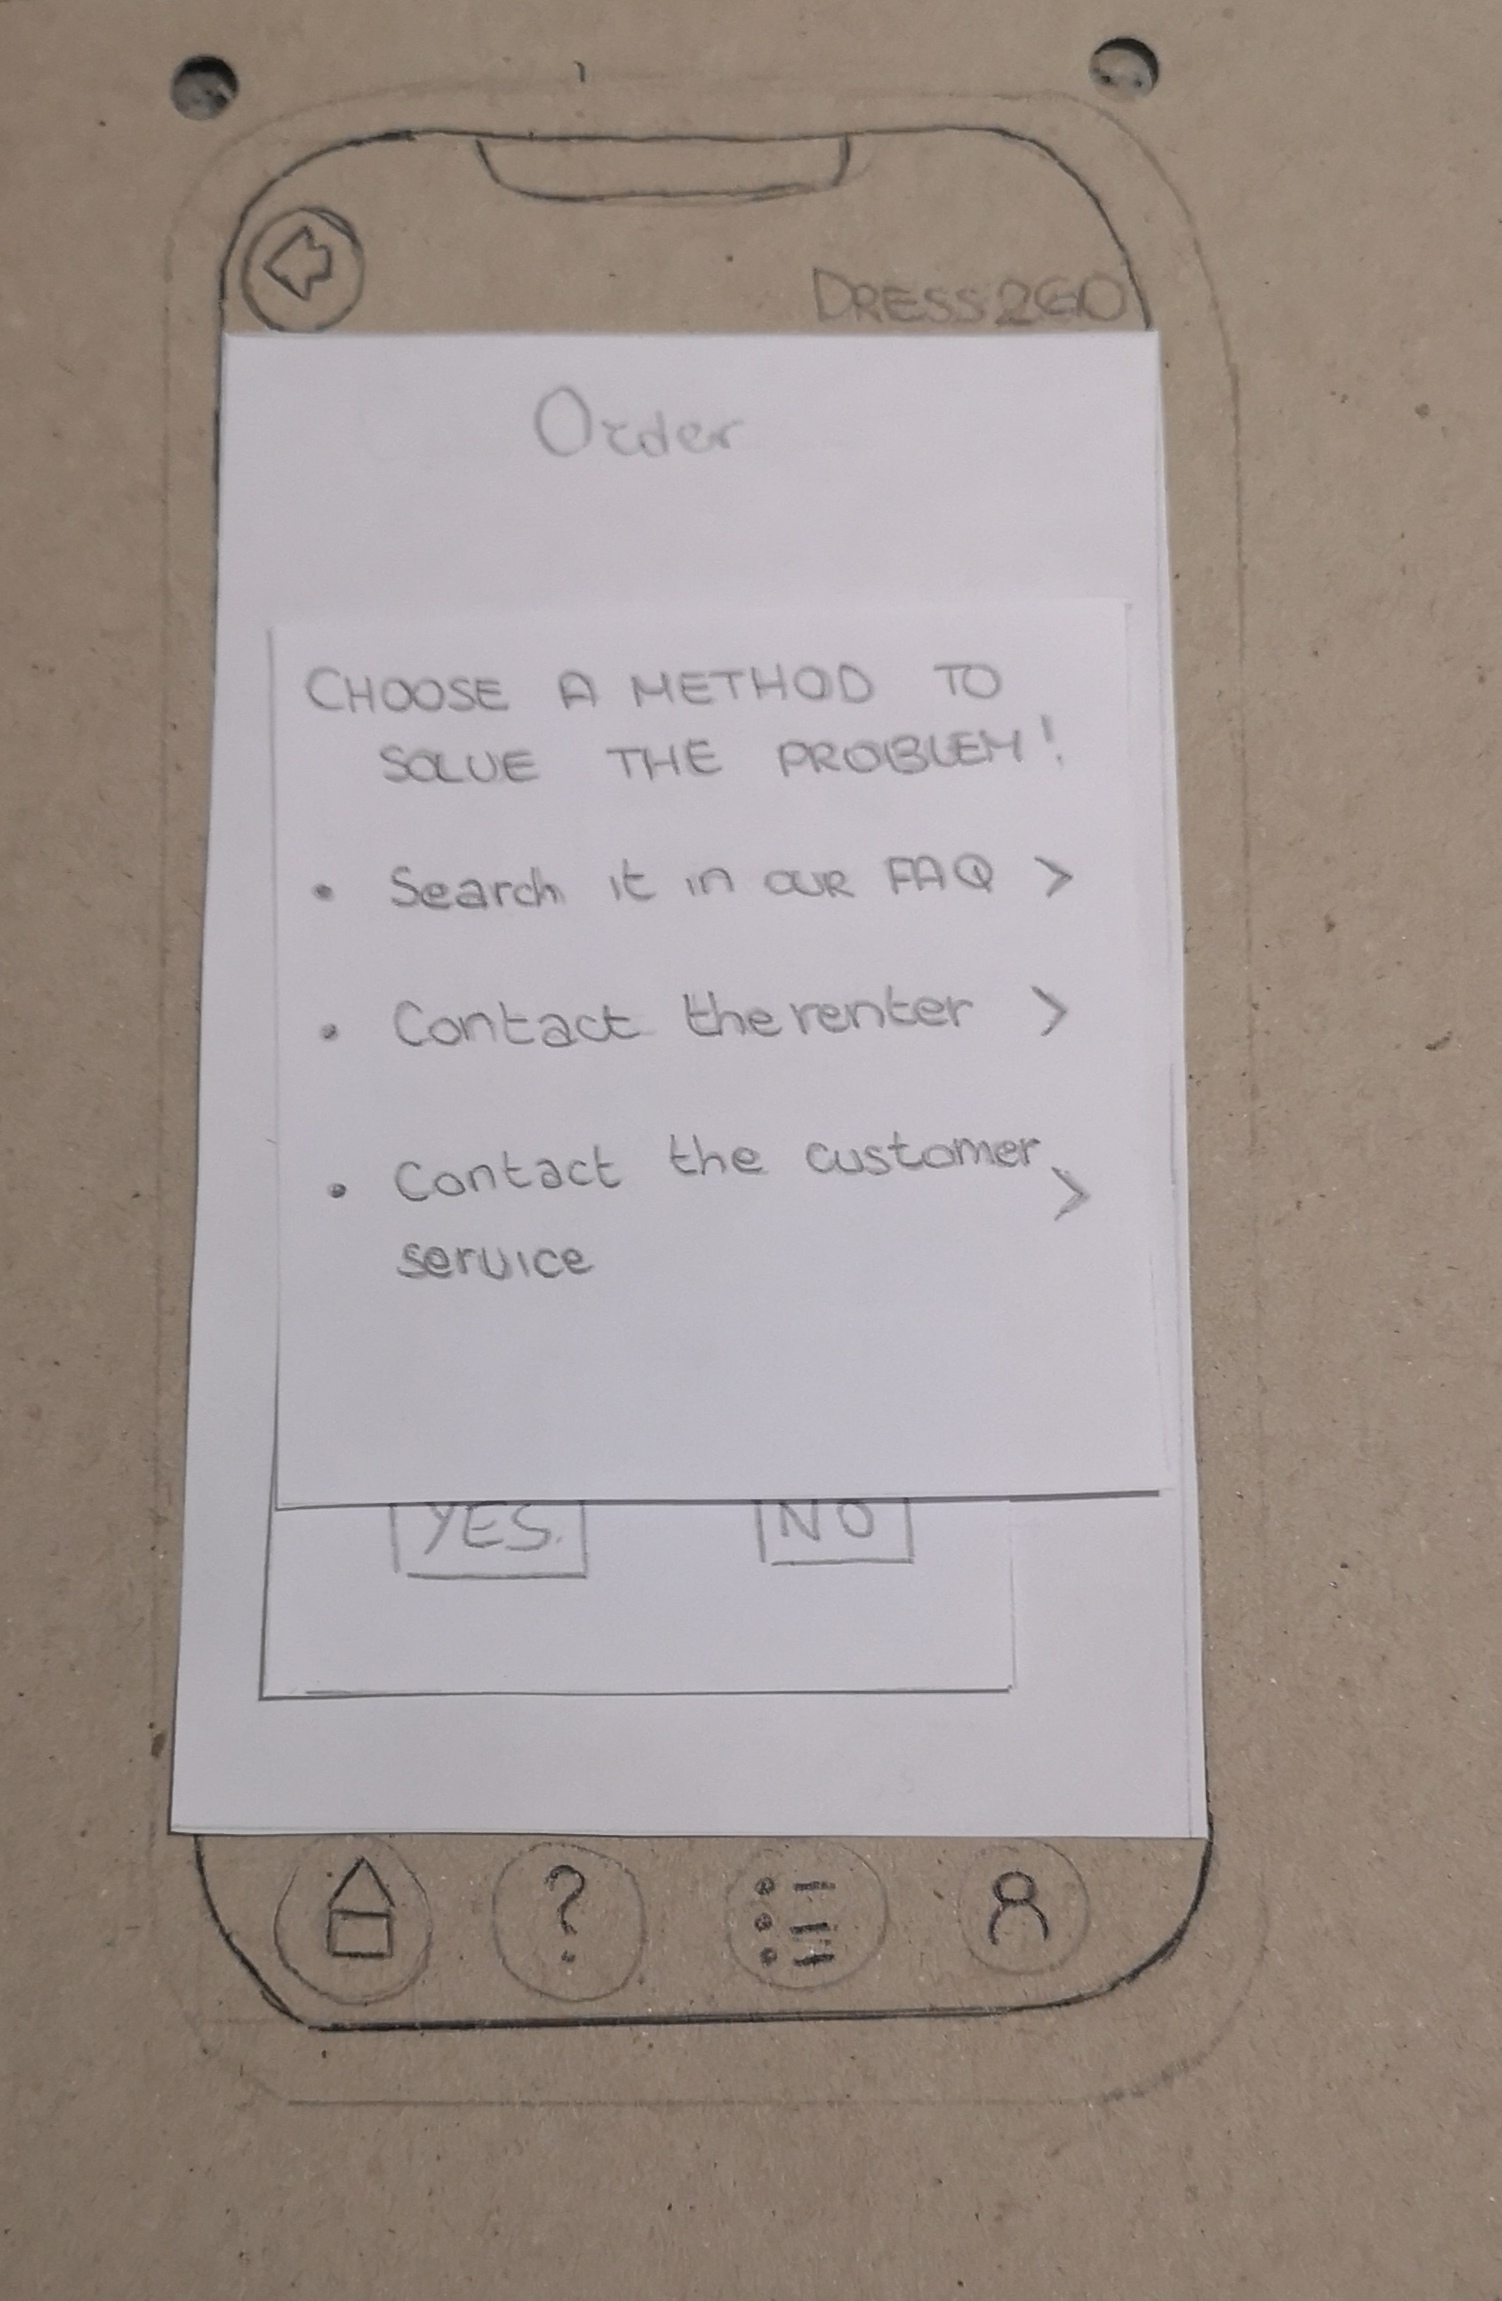 DRESS2GO
Order
CHOOSE A METHOD TO
SOLVE THE PROBLEM!
• Search it in OUR FAQ >
• Contact the renter >
• Contact the customer >
service
YES.
NO
?